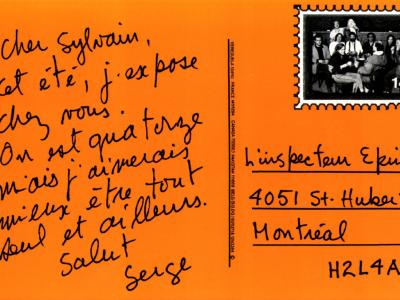 cher Sylvain,
cet été, j'expose
chez vous.
On est quatorze
mais j'aimerais
mieux être tout
seul et ailleurs.
Salut
Serge
L'inspecteur Epin
4051 St-Hubert
Montréal
H2L4A